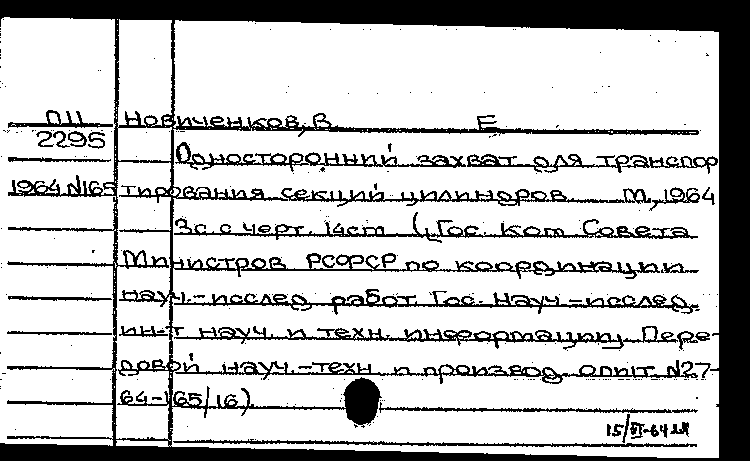 П11 Новиченков, В. Е
2295
Односторонний захват для транспор
1964 N165 тирования секций цилиндров М., 1964
3с. с черт. 14см (Гос. Ком Совета
Министров РСФСР по координации
науч.-исслед. работ Гос. науч-исслед.
ин-т науч. и техн. информации Пере-
довой науч.-техн и производ. опыт. N27-
64-165/16).
15/VI-64